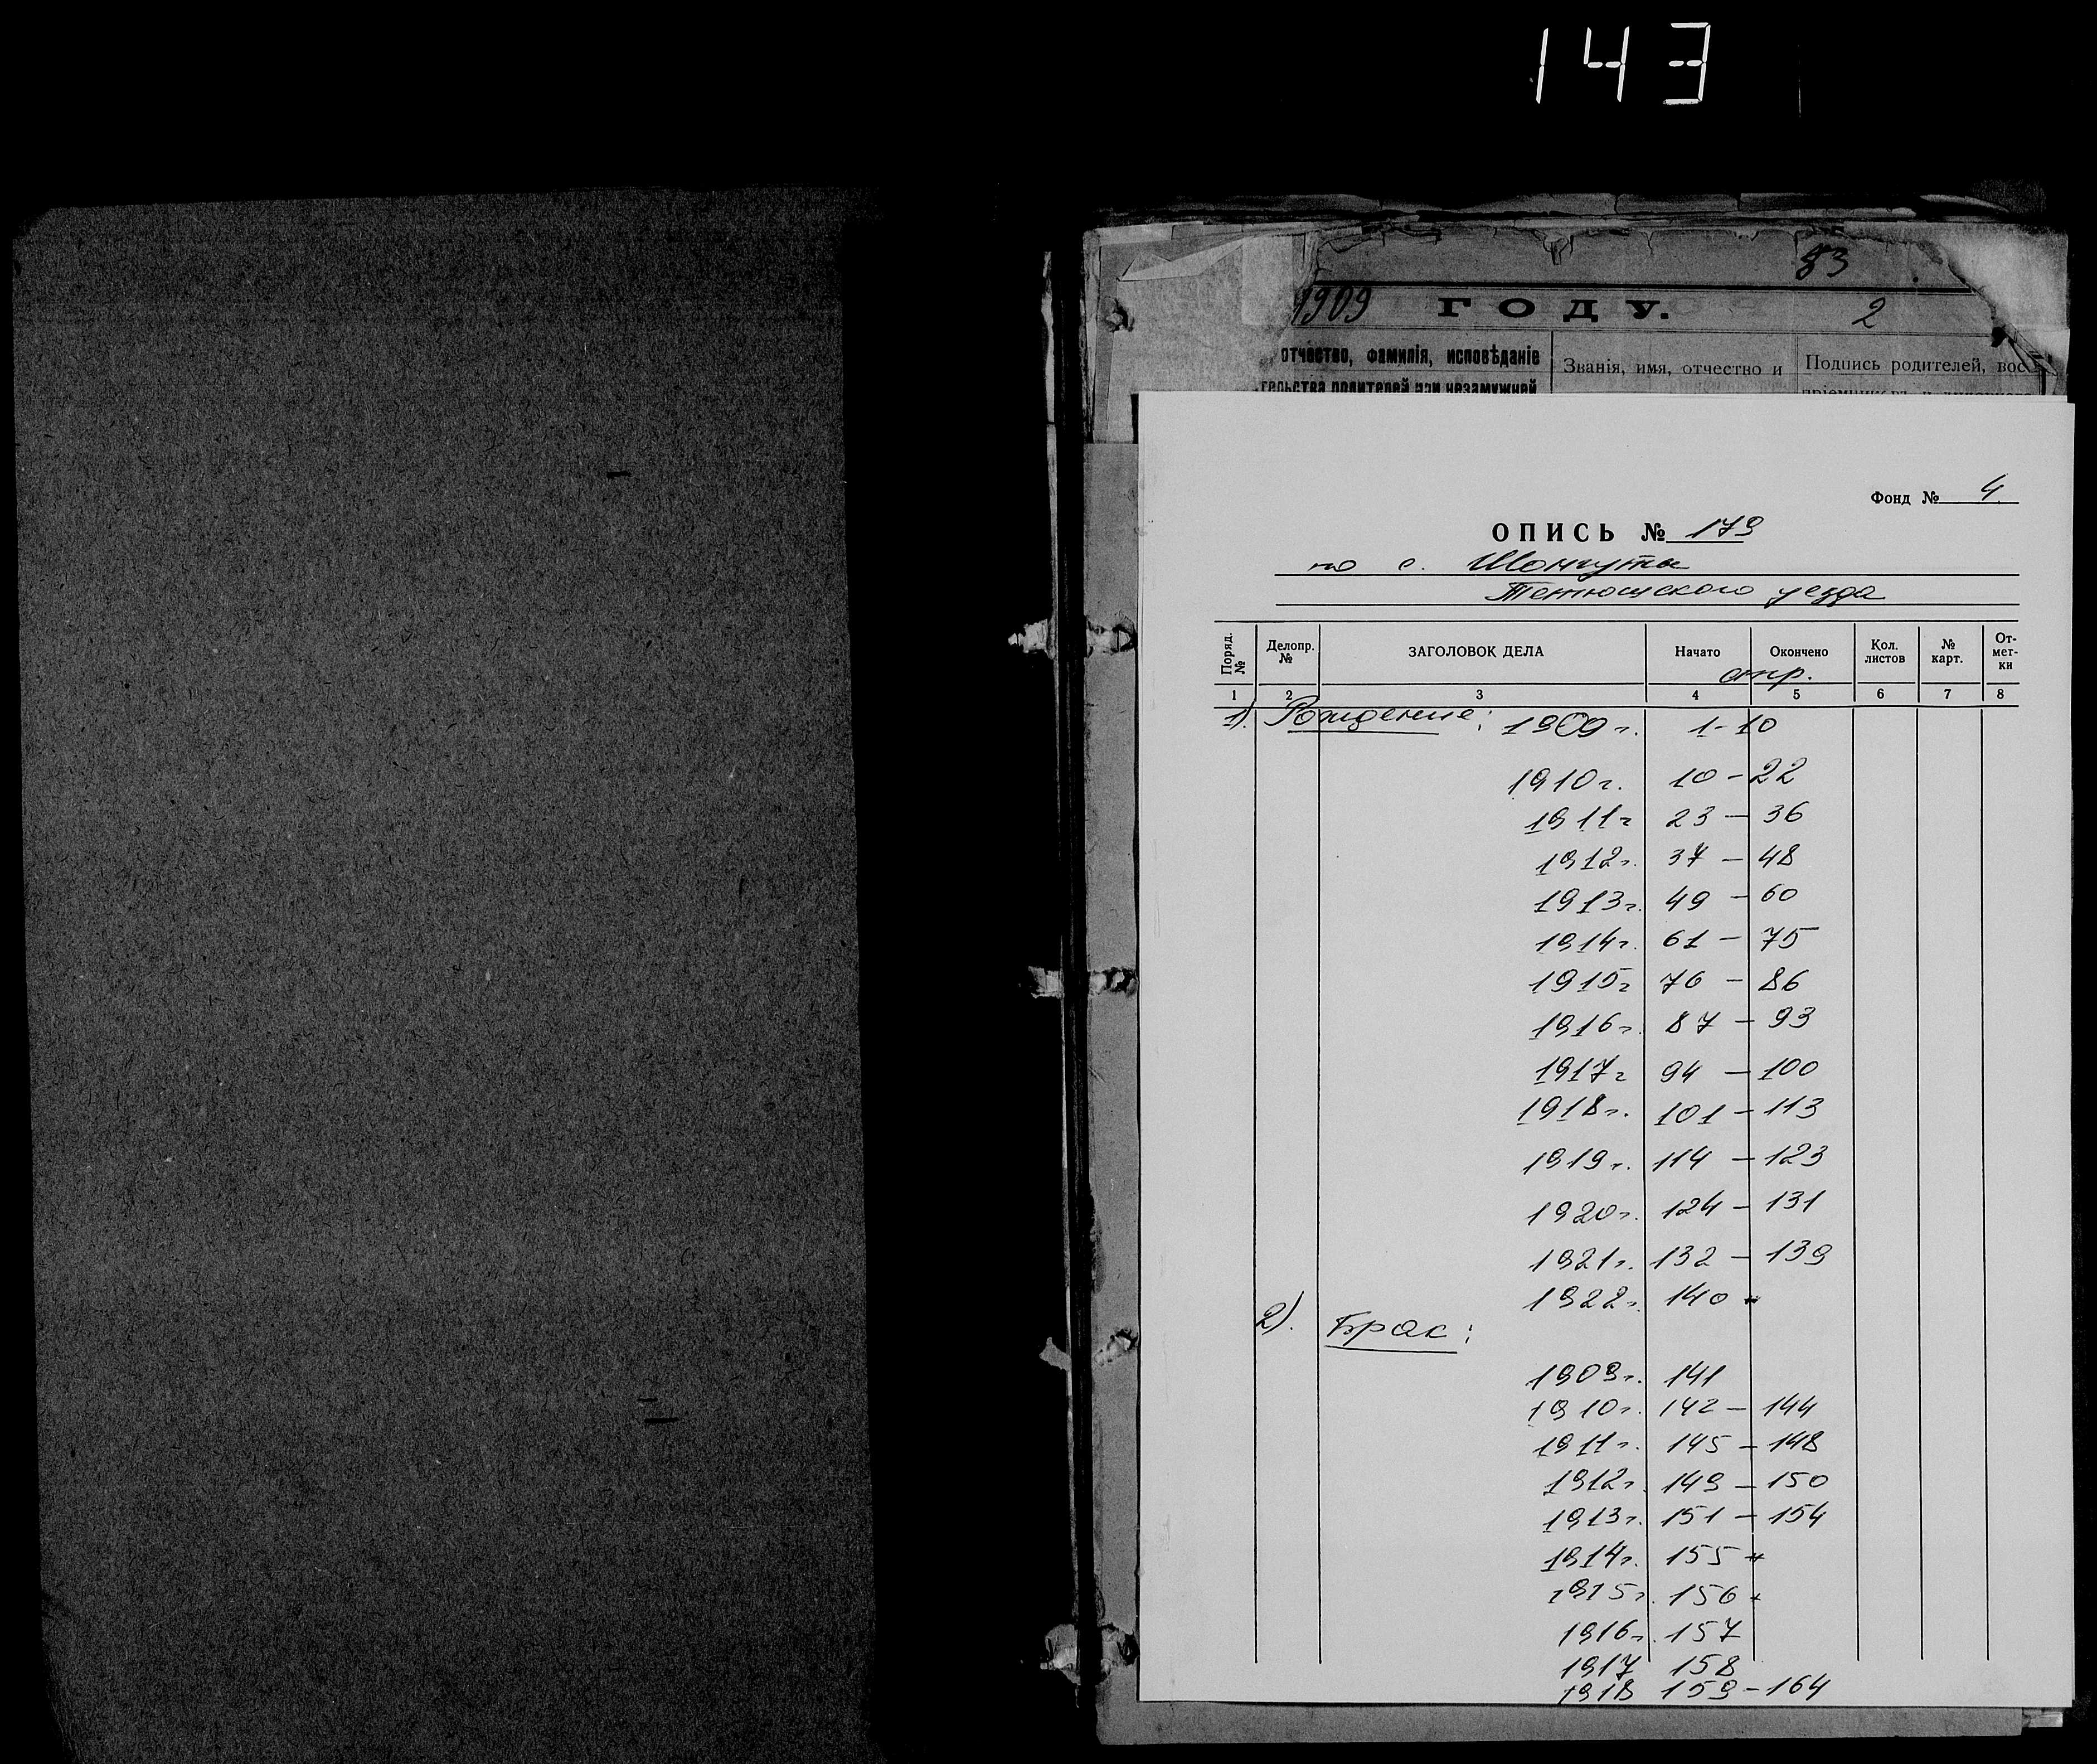 143
83
1909 ГОДУ. 2
отчество, фамилія, исповѣданіе
Званія, имя, отчество и
Подпись родителей, вос
родителей или незамужней
Фонд № 4
ОПИСЬ № 179
по с. Шонгуты
Тетюшского уезда
Поряд. № Делопр. № ЗАГОЛОВОК ДЕЛА Начато Окончено Кол. листов № карт. От-мет-ки
стр.
1 2 3 4 5 6 7 8
1). Рождение: 1909 г. 1-10
1910 г. 10 - 22
1911 г 23 - 36
1912 г. 37 - 48
1913 г. 49 - 60
1914 г. 61 - 75
1915 г 76 - 86
1916 г. 87 - 93
1917 г 94 - 100
1918 г. 101 - 113
1919 г. 114 - 123
1920 г. 124 - 131
1921 г. 132 - 139
1922 г. 140
2). Брак:
1909 г. 141
1910 г. 142 - 144
1911 г. 145 - 148
1912 г. 149 - 150
1913 г. 151 - 154
1914 г. 155
1915 г. 156
1916 г. 157
1917 158
1918 159 - 164